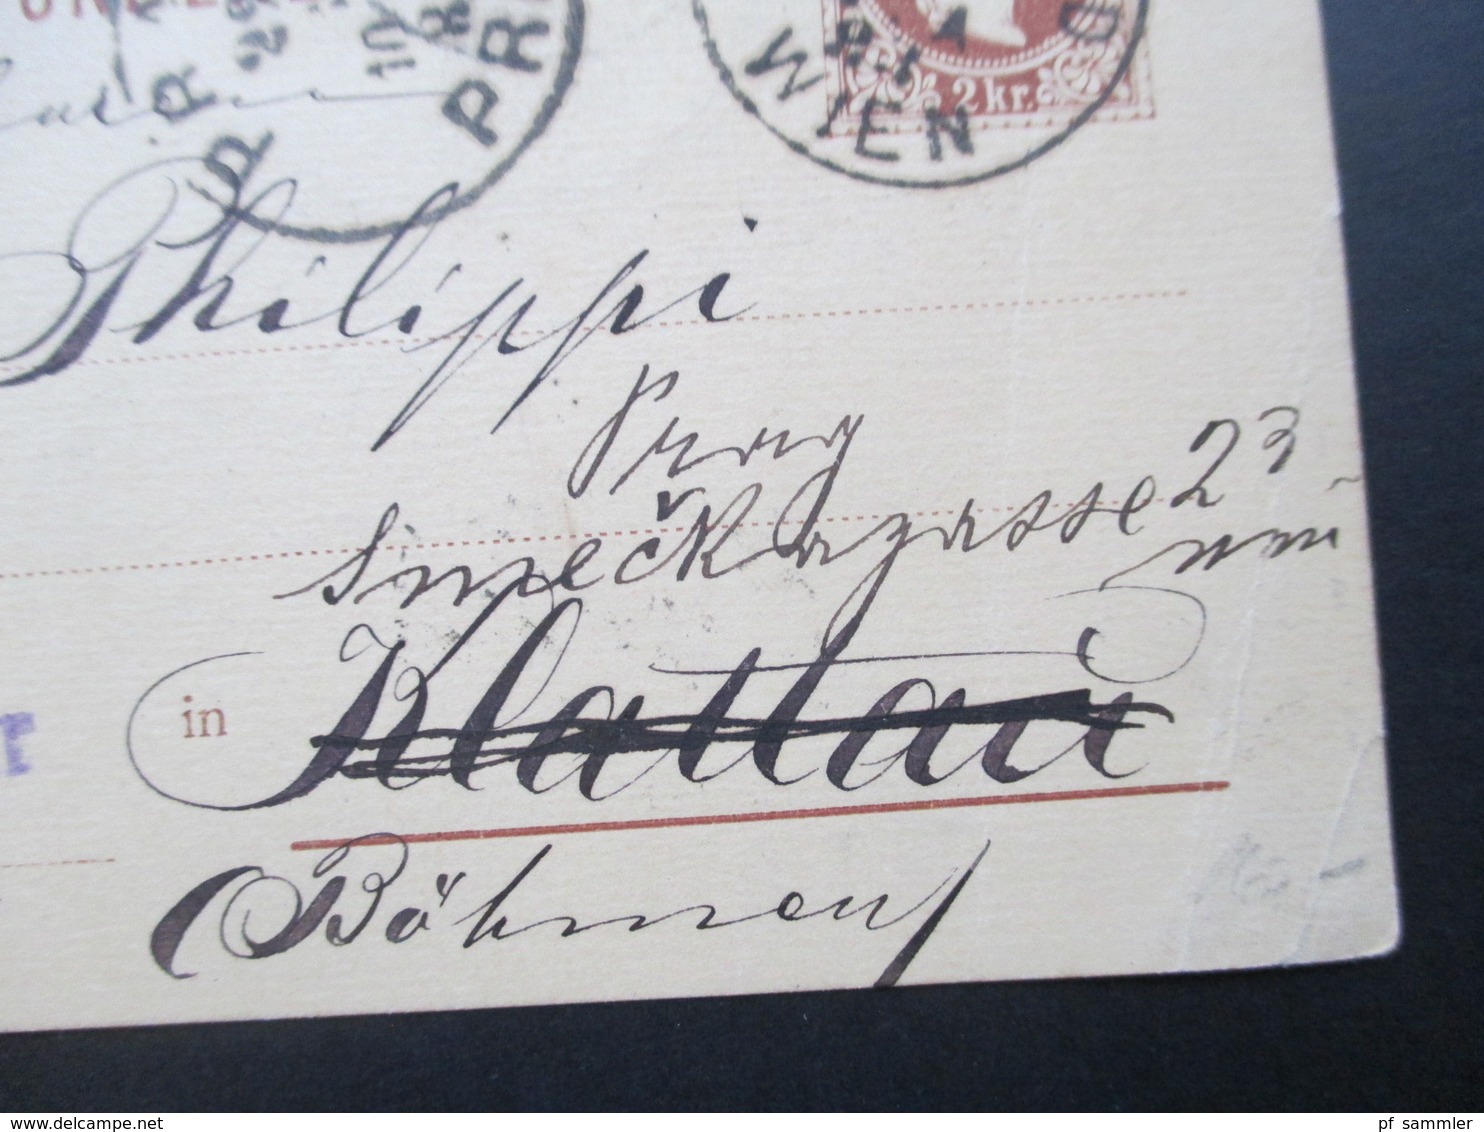 PR
WIEN
2 kr.
Philippi
Prag
Smečkagasse 23
in Klattau
(Böhmen)
pf_sammler